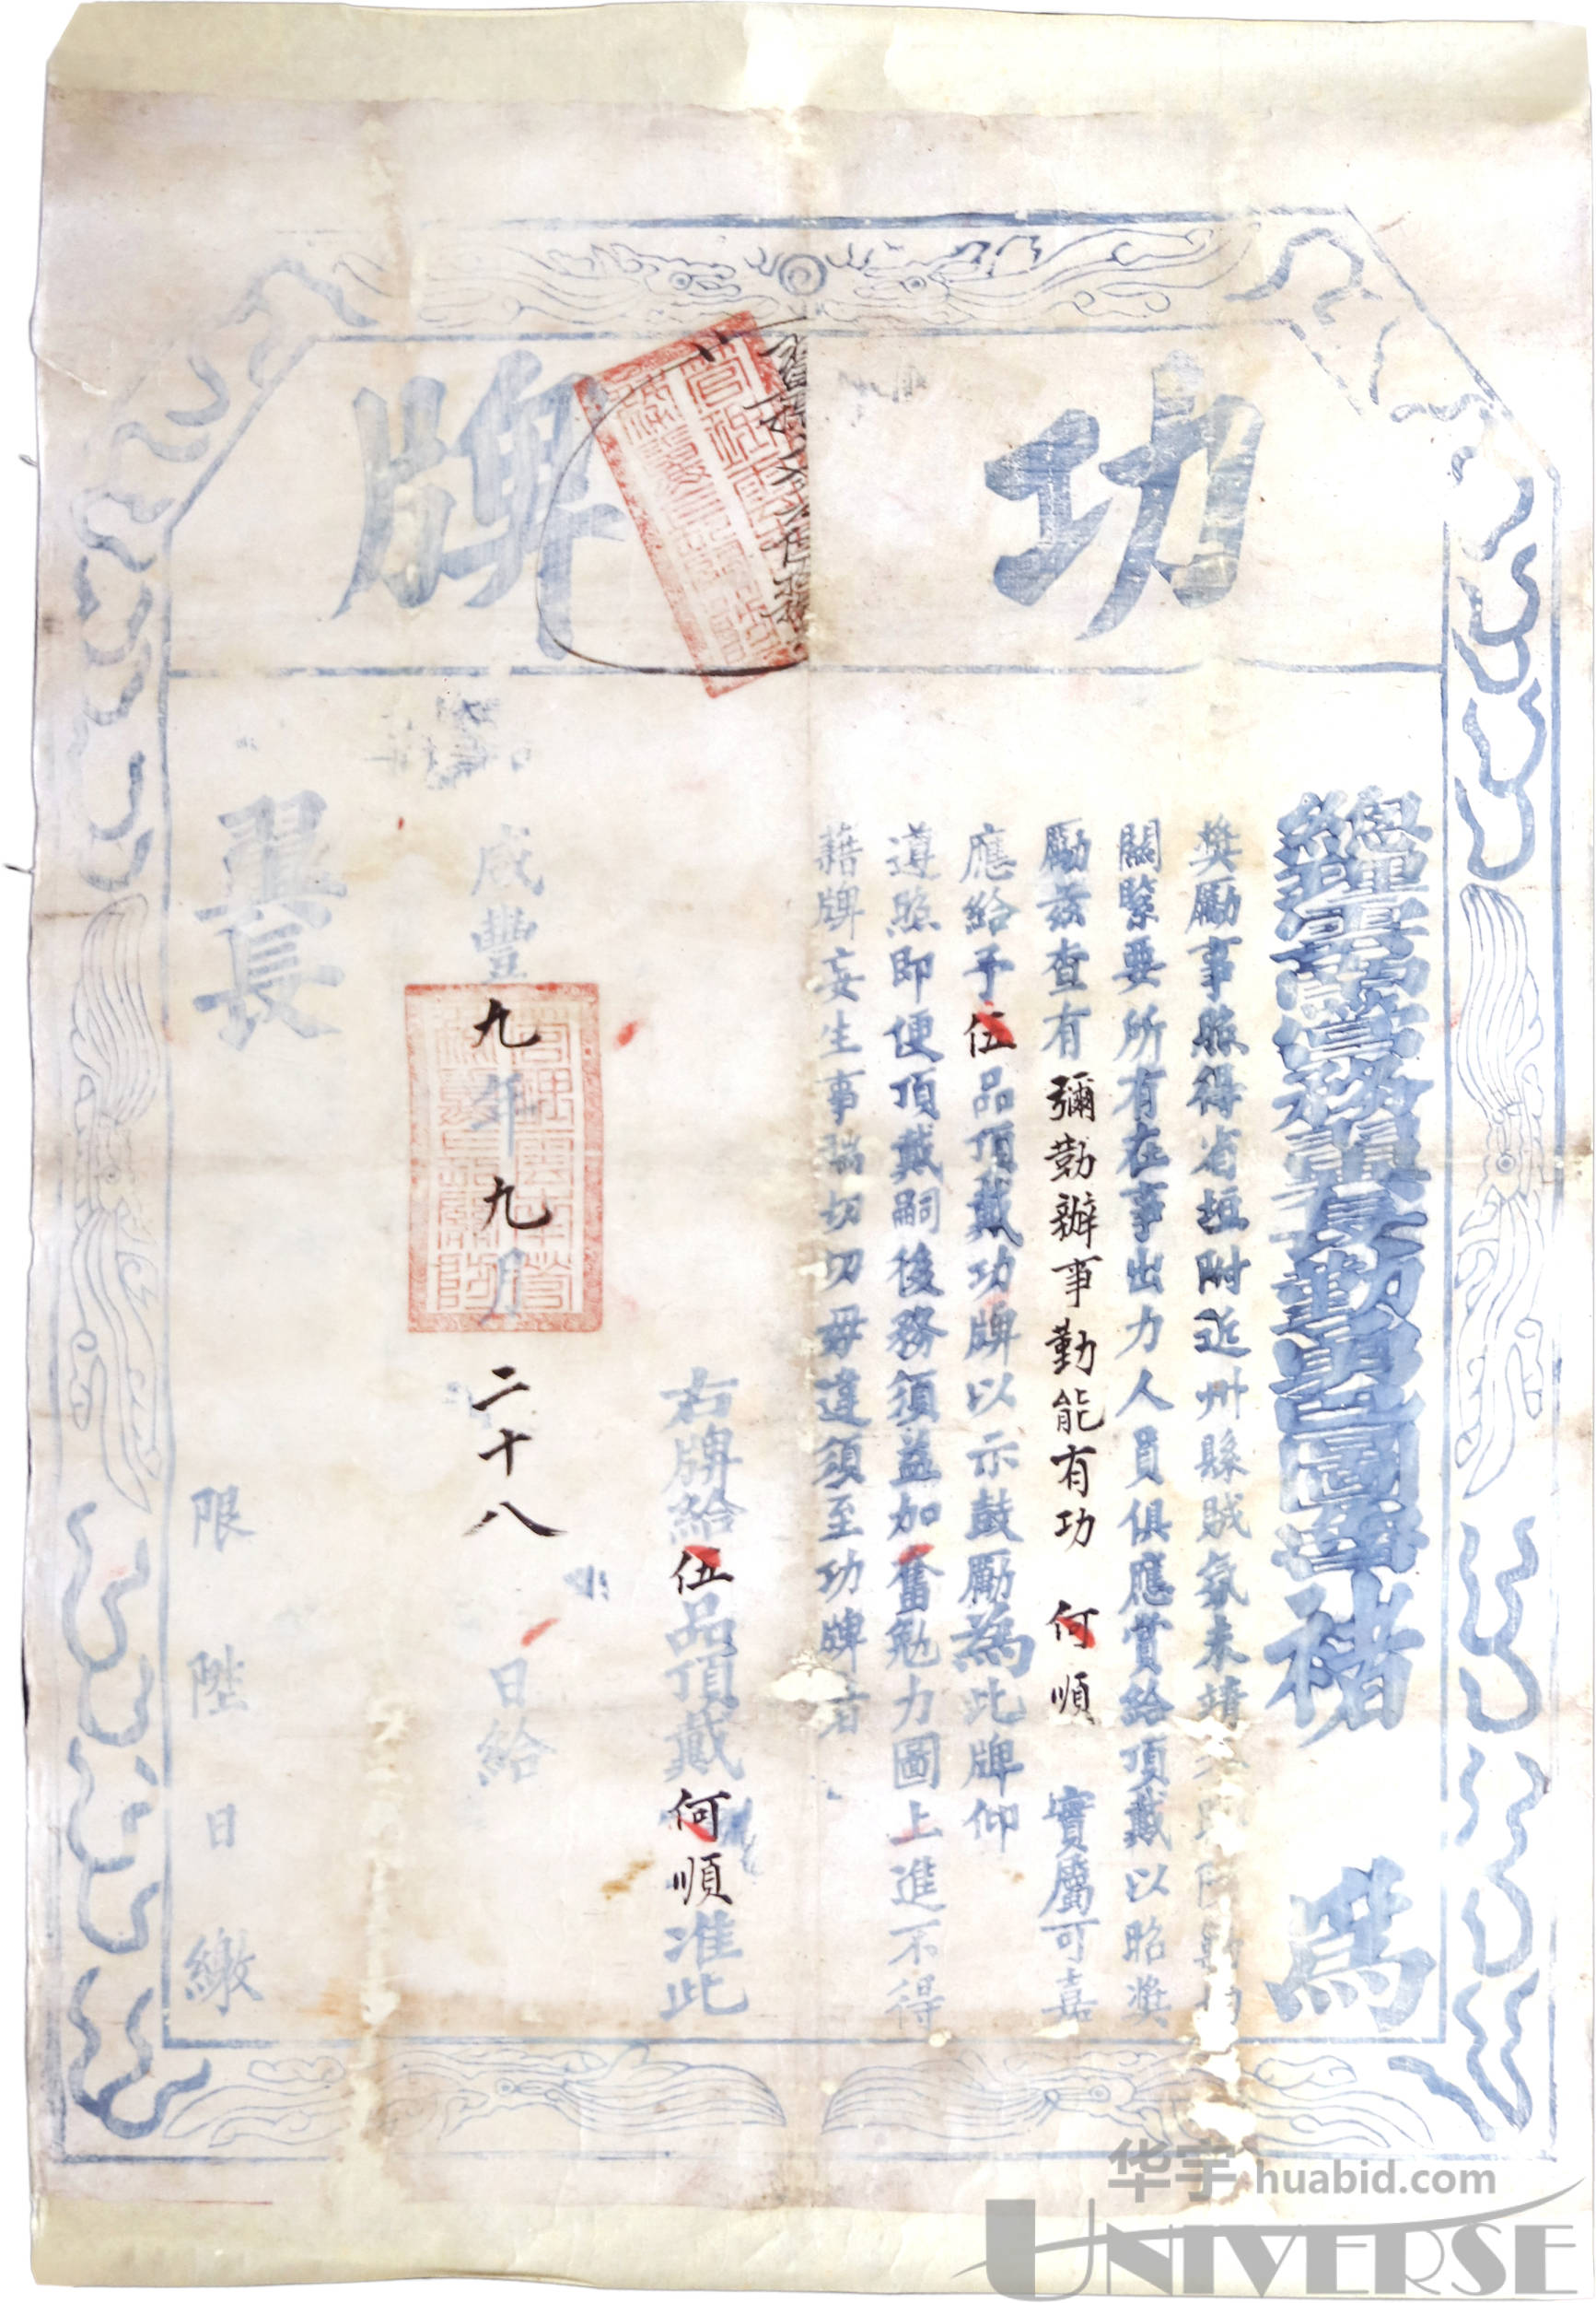 功牌
總理雲南營務翼長勤勇巴圖魯褚 為
獎勵事照得省垣附近州縣賊氛未靖
關緊要所有在事出力人員俱應賞給頂戴以昭獎
勵茲查有彌勒辦事勤能有功 何順 實屬可嘉
應給予伍品頂戴功牌以示鼓厲為此牌仰
遵照即便頂戴嗣後務須益加奮勉力圖上進不得
藉牌妄生事端切切毋違須至功牌者
右牌給伍品頂戴何順准此
咸豐九年九月二十八日給
翼長
限 陞 日 繳
华宇 huabid.com
UNIVERSE